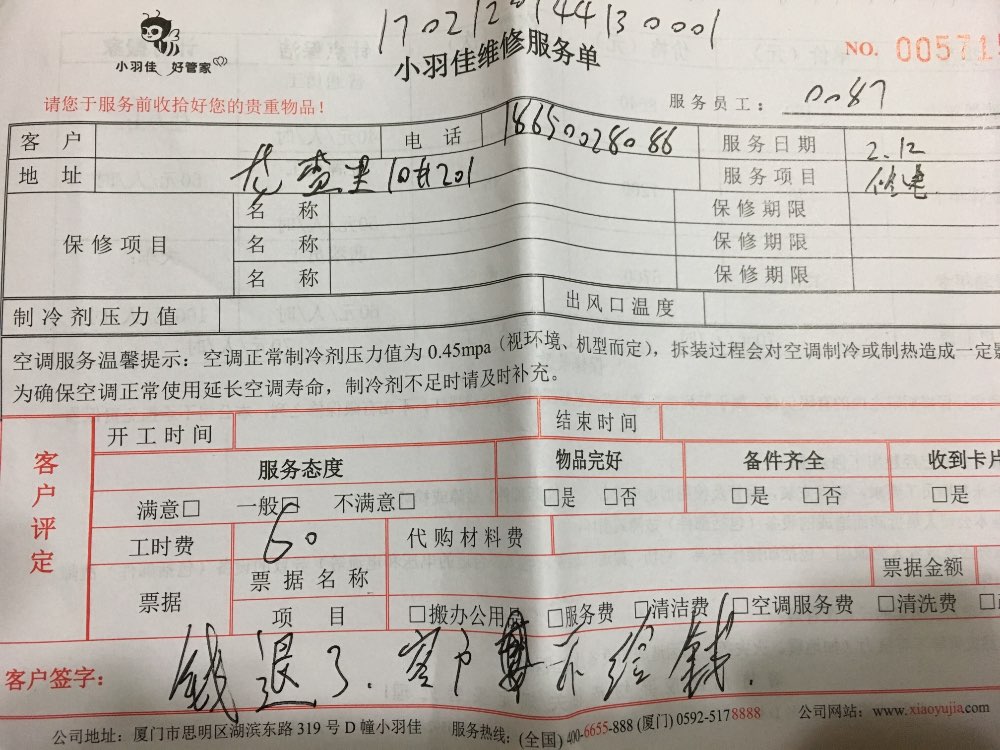 1702120144130001
小羽佳 好管家
小羽佳维修服务单
NO. 005715
请您于服务前收拾好您的贵重物品！
服务员工： 0087
客 户 电 话 18650028086 服务日期 2.12
地 址 10#201 服务项目
保修项目 名 称 保修期限
名 称 保修期限
名 称 保修期限
制冷剂压力值 出风口温度
空调服务温馨提示：空调正常制冷剂压力值为 0.45mpa（视环境、机型而定），拆装过程会对空调制冷或制热造成一定
为确保空调正常使用延长空调寿命，制冷剂不足时请及时补充。
客户评定
开工时间 结束时间
服务态度 物品完好 备件齐全 收到卡片
满意□ 一般□ 不满意□ □是 □否 □是 □否 □是
工时费 60 代购材料费
票据 票据名称 票据金额
项 目 □搬办公用品 □服务费 □清洁费 □空调服务费 □清洗费
客户签字： 钱退了.客户 不给钱.
公司地址：厦门市思明区湖滨东路 319 号 D 幢小羽佳 服务热线：(全国) 400-6655-888 (厦门) 0592-5178888 公司网站：www.xiaoyujia.com